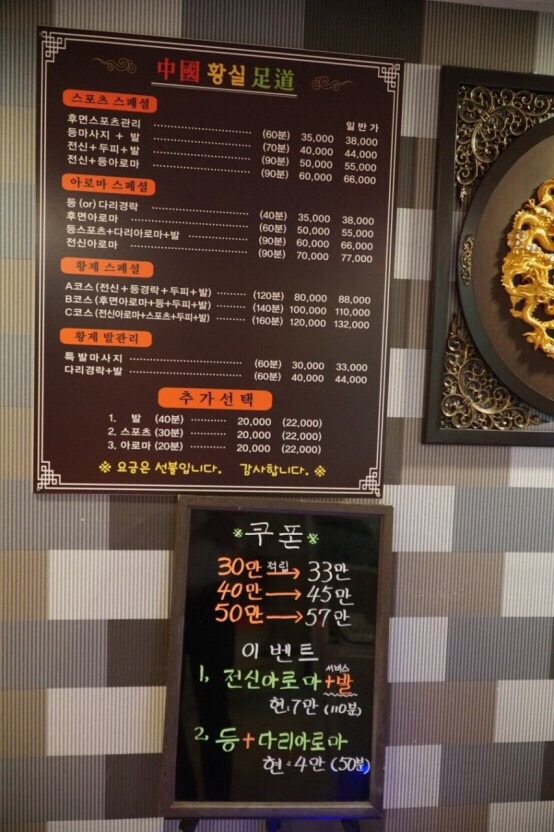 中國 황실 足道
스포츠 스페셜
일반가
후면스포츠관리 (60분) 35,000 38,000
등마사지 + 발 (70분) 40,000 44,000
전신+두피+발 (90분) 50,000 55,000
전신+등아로마 (90분) 60,000 66,000
아로마 스페셜
등(or)다리경락 (40분) 35,000 38,000
후면아로마 (60분) 50,000 55,000
등스포츠+다리아로마+발 (90분) 60,000 66,000
전신아로마 (90분) 70,000 77,000
황제 스페셜
A코스 (전신+등경락+두피+발) (120분) 80,000 88,000
B코스 (후면아로마+등+두피+발) (140분) 100,000 110,000
C코스 (전신아로마+스포츠+두피+발) (160분) 120,000 132,000
황제 발관리
특 발마사지 (60분) 30,000 33,000
다리경락+발 (60분) 40,000 44,000
추가선택
1. 발 (40분) 20,000 (22,000)
2. 스포츠 (30분) 20,000 (22,000)
3. 아로마 (20분) 20,000 (22,000)
※ 요금은 선불입니다. 감사합니다. ※
※쿠폰※
30만 적립→ 33만
40만 → 45만
50만 → 57만
이벤트
서비스
1, 전신아로마+발
현:7만 (110분)
2, 등+다리아로마
현:4만 (50분)